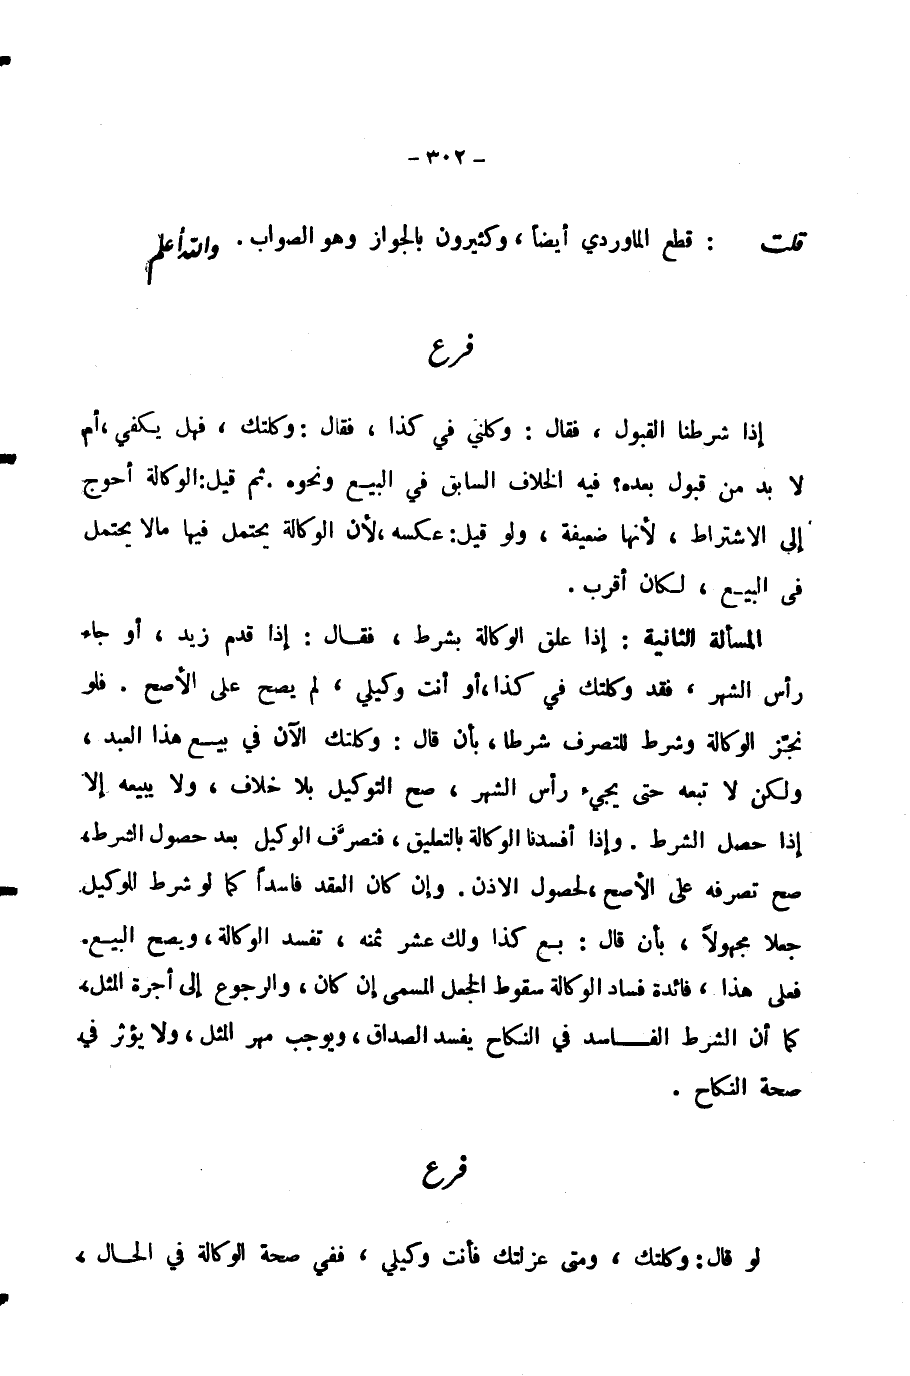 - ٣٠٢ -
قلت : قطع الماوردي أيضاً ، وكثيرون بالجواز وهو الصواب . والله أعلم
فرع
إذا شرطنا القبول ، فقال : وكلني في كذا ، فقال : وكلتك ، فهل يكفي ، أم
لا بد من قبول بعده؟ فيه الخلاف السابق في البيع ونحوه . ثم قيل : الوكالة أحوج
إلى الاشتراط ، لأنها ضعيفة ، ولو قيل : عكسه ، لأن الوكالة يحتمل فيها مالا يحتمل
في البيع ، لكان أقرب .
المسألة الثانية : إذا علق الوكالة بشرط ، فقال : إذا قدم زيد ، أو جاء
رأس الشهر ، فقد وكلتك في كذا ، أو أنت وكيلي ، لم يصح على الأصح . فلو
نجّز الوكالة وشرط للتصرف شرطا ، بأن قال : وكلتك الآن في بيع هذا العبد ،
ولكن لا تبعه حتى يجيء رأس الشهر ، صح التوكيل بلا خلاف ، ولا يبيعه إلا
إذا حصل الشرط . وإذا أفسدنا الوكالة بالتعليق ، فتصرَّف الوكيل بعد حصول الشرط ،
صح تصرفه على الأصح ، لحصول الاذن . وإن كان العقد فاسداً كما لو شرط للوكيل
جعلا مجهولاً ، بأن قال : بع كذا ولك عشر ثمنه ، تفسد الوكالة ، ويصح البيع .
فعلى هذا ، فائدة فساد الوكالة سقوط الجعل المسمى إن كان ، والرجوع إلى أجرة المثل ،
كما أن الشرط الفاسد في النكاح يفسد الصداق ، ويوجب مهر المثل ، ولا يؤثر في
صحة النكاح .
فرع
لو قال : وكلتك ، ومتى عزلتك فأنت وكيلي ، ففي صحة الوكالة في الحال ،